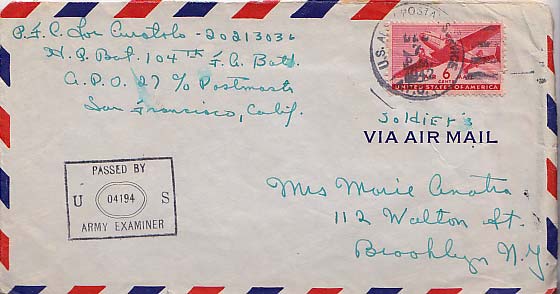 P.F.C. Lou Curatolo - 20213036
H.Q. Bat. 104th F.A. Batt.
A.P.O. 27 % Postmaster
San Francisco, Calif.
U.S. POSTAL
1942
6
CENTS
UNITED STATES OF AMERICA
Soldier's
VIA AIR MAIL
PASSED BY
U 04194 S
ARMY EXAMINER
Mrs Marie
112 Walton St.
Brooklyn N.Y.